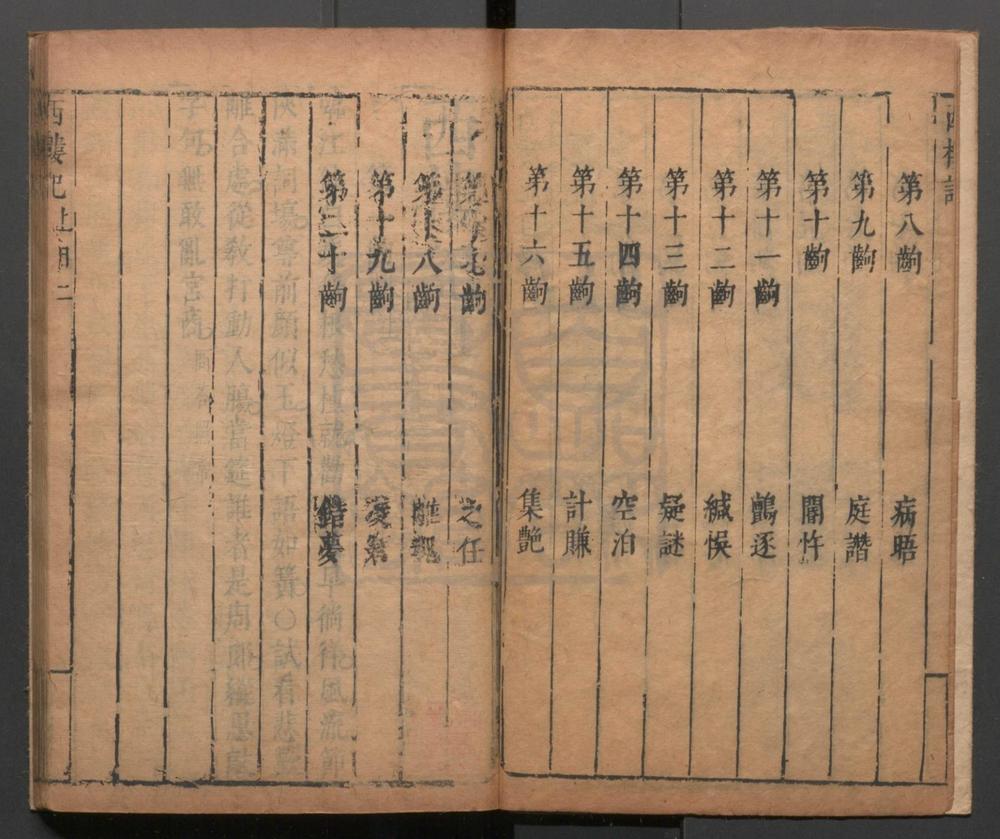 西樓記
第八齣 病晤
第九齣 庭譖
第十齣 鬧忤
第十一齣 鸇逐
第十二齣 緘悞
第十三齣 疑謎
第十四齣 空泊
第十五齣 計賺
第十六齣 集艶
第十七齣 之任
第十八齣 離
第十九齣
第二十齣 錯夢
西樓記 上 目 二